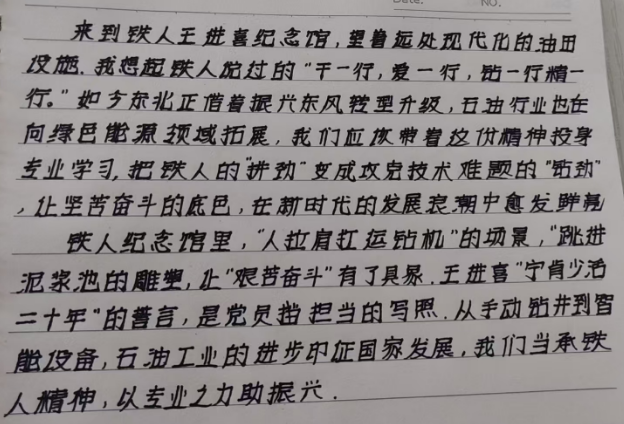 Date.
NO.
来到铁人王进喜纪念馆,望着远处现代化的油田
设施.我想起铁人说过的“干一行,爱一行,钻一行精一
行。”如今东北正借着振兴东风转型升级,石油行业也在
向绿色能源领域拓展,我们应该带着这份精神投身
专业学习,把铁人的“拼劲”变成攻克技术难题的“钻劲”
,让坚苦奋斗的底色,在新时代的发展浪潮中愈发鲜亮
铁人纪念馆里,“人拉肩扛运钻机”的场景,“跳进
泥浆池的雕塑,让“艰苦奋斗”有了具象.王进喜“宁肯少活
二十年”的誓言,是党员担当的写照.从手动钻井到智
能设备,石油工业的进步印证国家发展,我们当承铁
人精神,以专业之力助振兴.